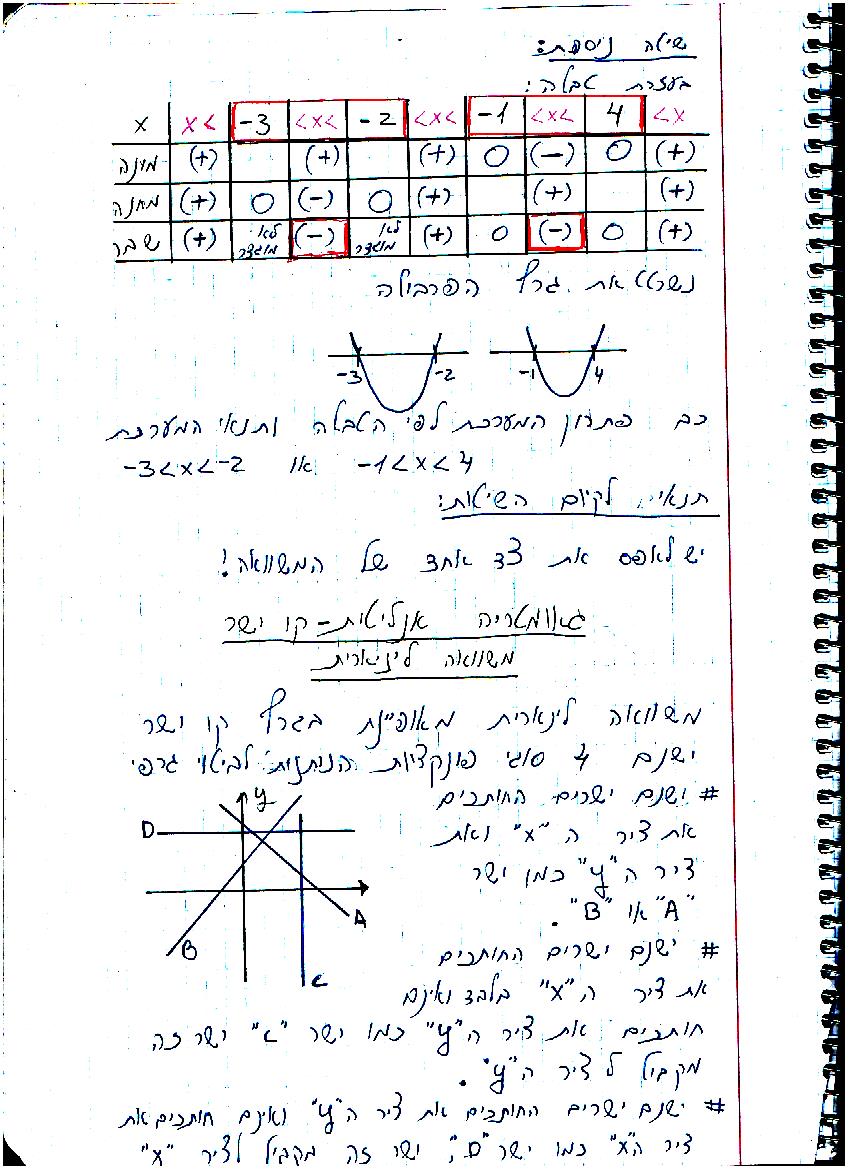 שיטה נוספת:
בעזרת טבלה:
x x< -3 <x< -2 <x< -1 <x< 4 <x
מונה (+) (+) (+) 0 (-) 0 (+)
מכנה (+) 0 (-) 0 (+) (+) (+)
שבר (+) לא מוגדר (-) לא מוגדר (+) 0 (-) 0 (+)
נשרטט את גרף הפרבולה
-3 -2 -1 4
פתרון המערכת לפי הטבלה ותנאי המערכת
-3<x<-2 או -1<x<4
תנאי לקיום השיטות:
יש לאפס את צד אחד של המשוואה!
גאומטריה אנליטית - קו ישר
משוואה לינארית
משוואה לינארית מאופיינת בגרף קו ישר
ישנם 4 סוגי פונקציות הנותנות לביטוי גרפי
# ישנם ישרים החותכים
את ציר ה "x" ואת
ציר ה"y" כמו ישר
"A" או "B".
y
D
A
B
c
# ישנם ישרים החותכים
את ציר ה"x" בלבד ואינם
חותכים את ציר ה"y" כמו ישר "c" ישר זה
מקביל ל ציר ה"y".
# ישנם ישרים החותכים את ציר ה"y" ואינם חותכים את
ציר ה"x" כמו ישר "D", ישר זה מקביל לציר "x"